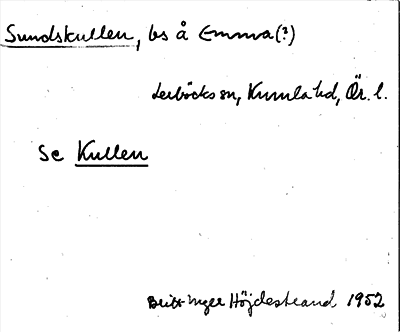 Sundskullen, bs å Emma(?)
Lerbäcks sn, Kumla hd, Ör. l.
Se Kullen
Britt Inger Höjdestrand 1952